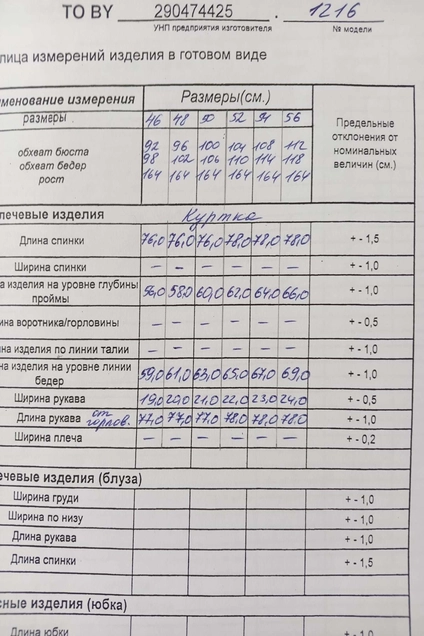 ТО BY 290474425 . 1216
УНП предприятия изготовителя № модели
лица измерений изделия в готовом виде
именование измерения Размеры(см.) Предельные отклонения от номинальных величин (см.)
размеры 46 48 50 52 54 56
обхват бюста 92 96 100 104 108 112
обхват бедер 98 102 106 110 114 118
рост 164 164 164 164 164 164
лечевые изделия Куртка
Длина спинки 76,0 76,0 76,0 78,0 78,0 78,0 + - 1,5
Ширина спинки – – – – – – + - 1,0
а изделия на уровне глубины проймы 56,0 58,0 60,0 62,0 64,0 66,0 + - 1,0
ина воротника/горловины – – – – – – + - 0,5
на изделия по линии талии – – – – – – + - 1,0
на изделия на уровне линии бедер 59,0 61,0 63,0 65,0 67,0 69,0 + - 1,0
Ширина рукава 19,0 20,0 21,0 22,0 23,0 24,0 + - 0,5
Длина рукава от горлов. 77,0 77,0 77,0 78,0 78,0 78,0 + - 1,0
Ширина плеча – – – – – – + - 0,2
ечевые изделия (блуза)
Ширина груди + - 1,0
Ширина по низу + - 1,0
Длина рукава + - 1,0
Длина спинки + - 1,5
сные изделия (юбка)
Длина юбки + - 1,0